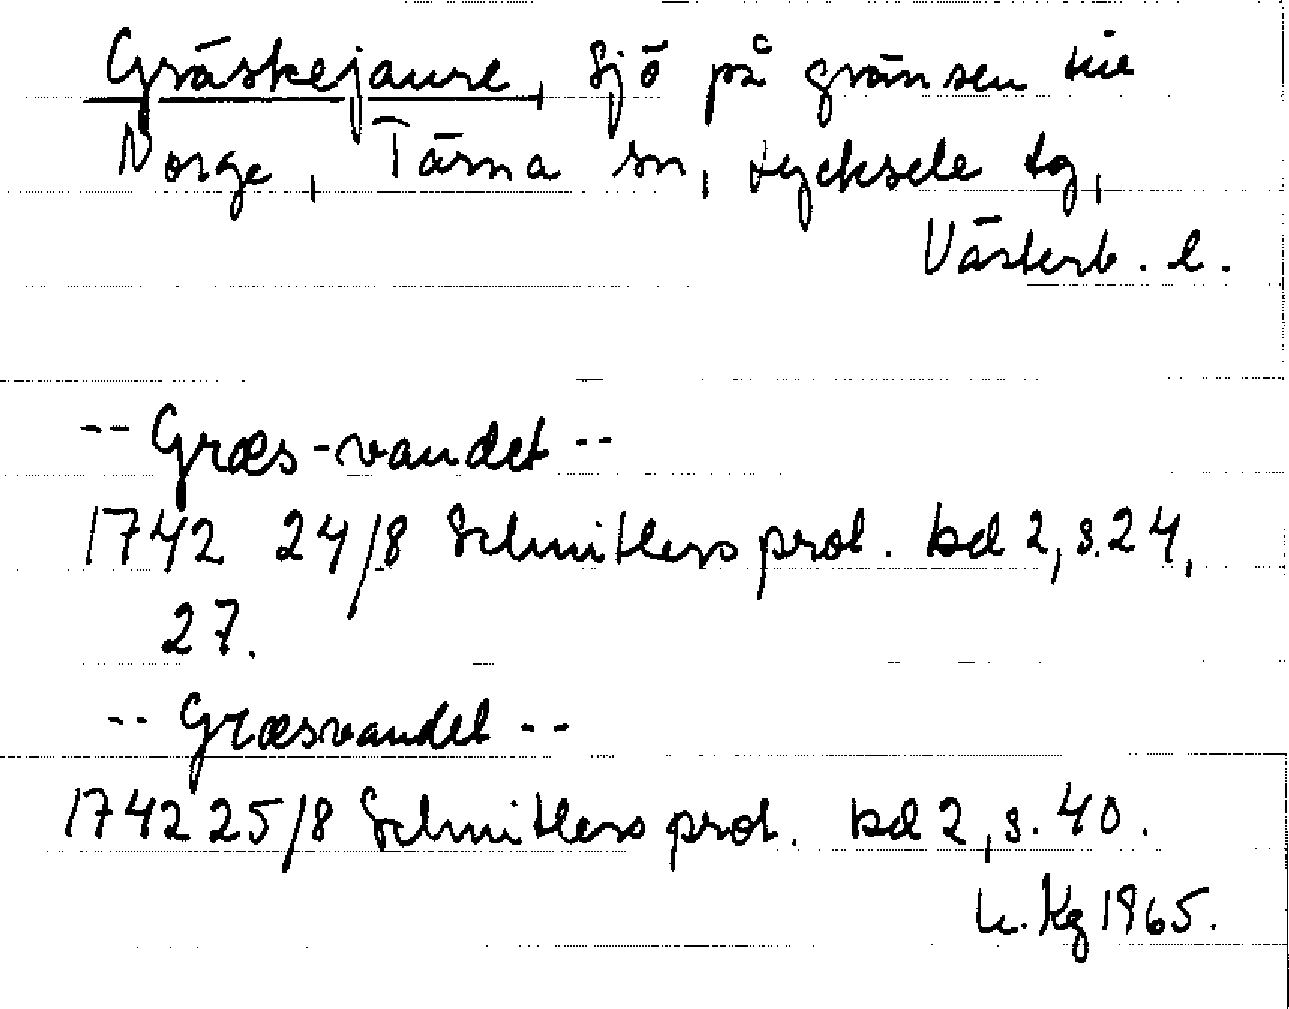 Gräskejaure, sjö på gränsen till
Norge, Tärna sn, Lycksele lg,
Västerb. l.
-- Græs-vandet --
1742 24/8 Schnitlers prot. bd 2, s. 24,
27.
-- Græsvandet --
1742 25/8 Schnitlers prot. bd 2, s. 40.
Kg 1965.